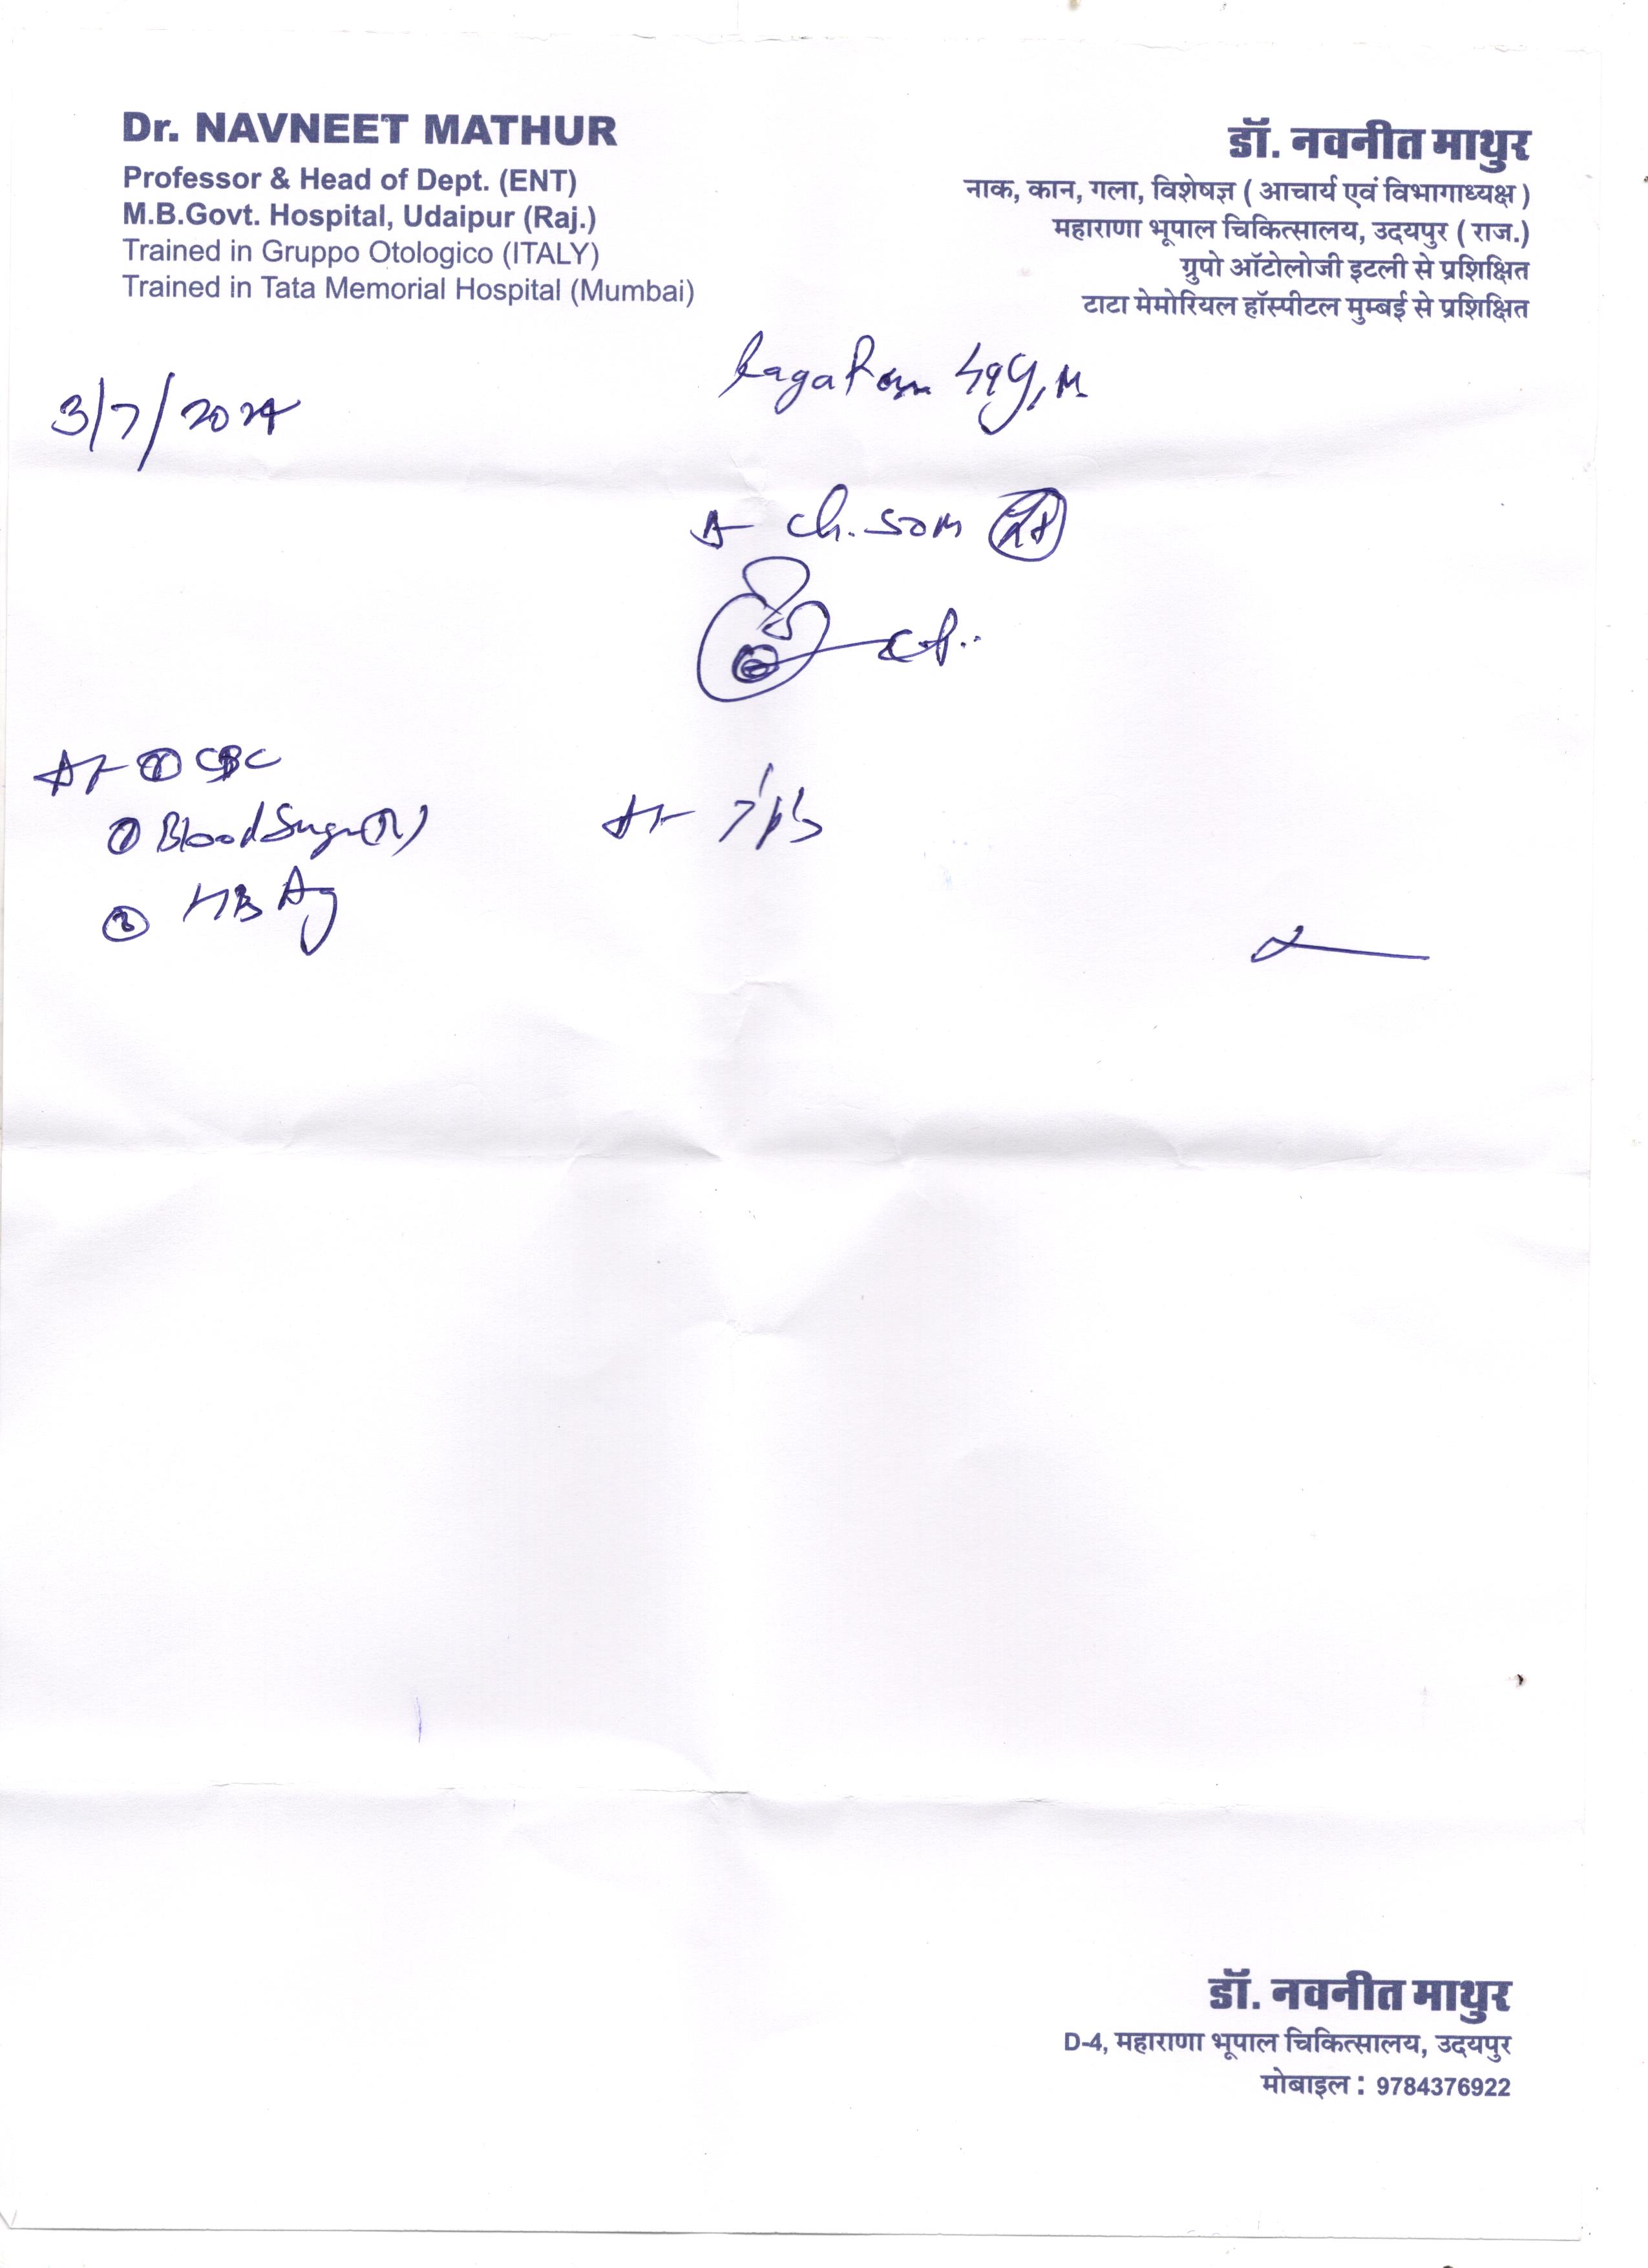 Dr. NAVNEET MATHUR
Professor & Head of Dept. (ENT)
M.B.Govt. Hospital, Udaipur (Raj.)
Trained in Gruppo Otologico (ITALY)
Trained in Tata Memorial Hospital (Mumbai)
डॉ. नवनीत माथुर
नाक, कान, गला, विशेषज्ञ ( आचार्य एवं विभागाध्यक्ष )
महाराणा भूपाल चिकित्सालय, उदयपुर ( राज.)
ग्रुपो ऑटोलोजी इटली से प्रशिक्षित
टाटा मेमोरियल हॉस्पीटल मुम्बई से प्रशिक्षित
3/7/2024
Ch. SOM
CBC
Blood Sugar (R)
डॉ. नवनीत माथुर
D-4, महाराणा भूपाल चिकित्सालय, उदयपुर
मोबाइल : 9784376922